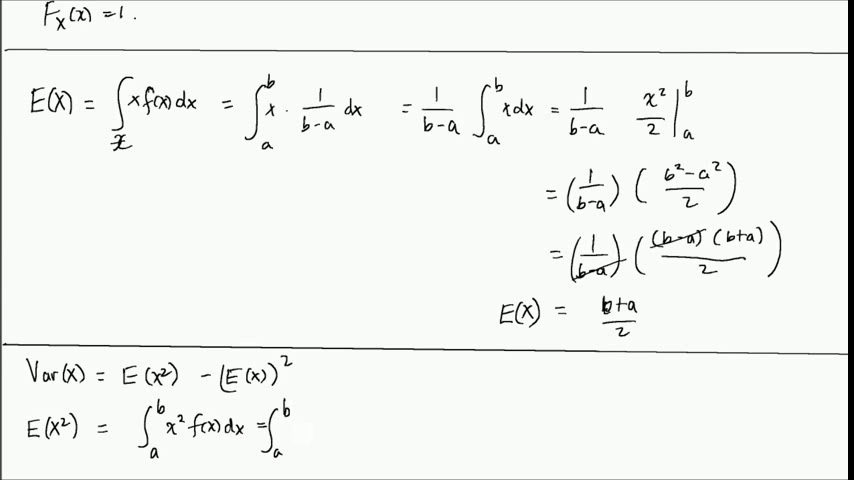 F_X(x) = 1.
E(X) = ∫_𝓧 x f(x) dx = ∫_a^b x · 1/(b-a) dx = 1/(b-a) ∫_a^b x dx = 1/(b-a) x²/2 |_a^b
= (1/(b-a)) ((b²-a²)/2)
= (1/(b-a)) ((b-a)(b+a)/2)
E(X) = (b+a)/2
Var(X) = E(X²) - (E(X))²
E(X²) = ∫_a^b x² f(x) dx = ∫_a^b